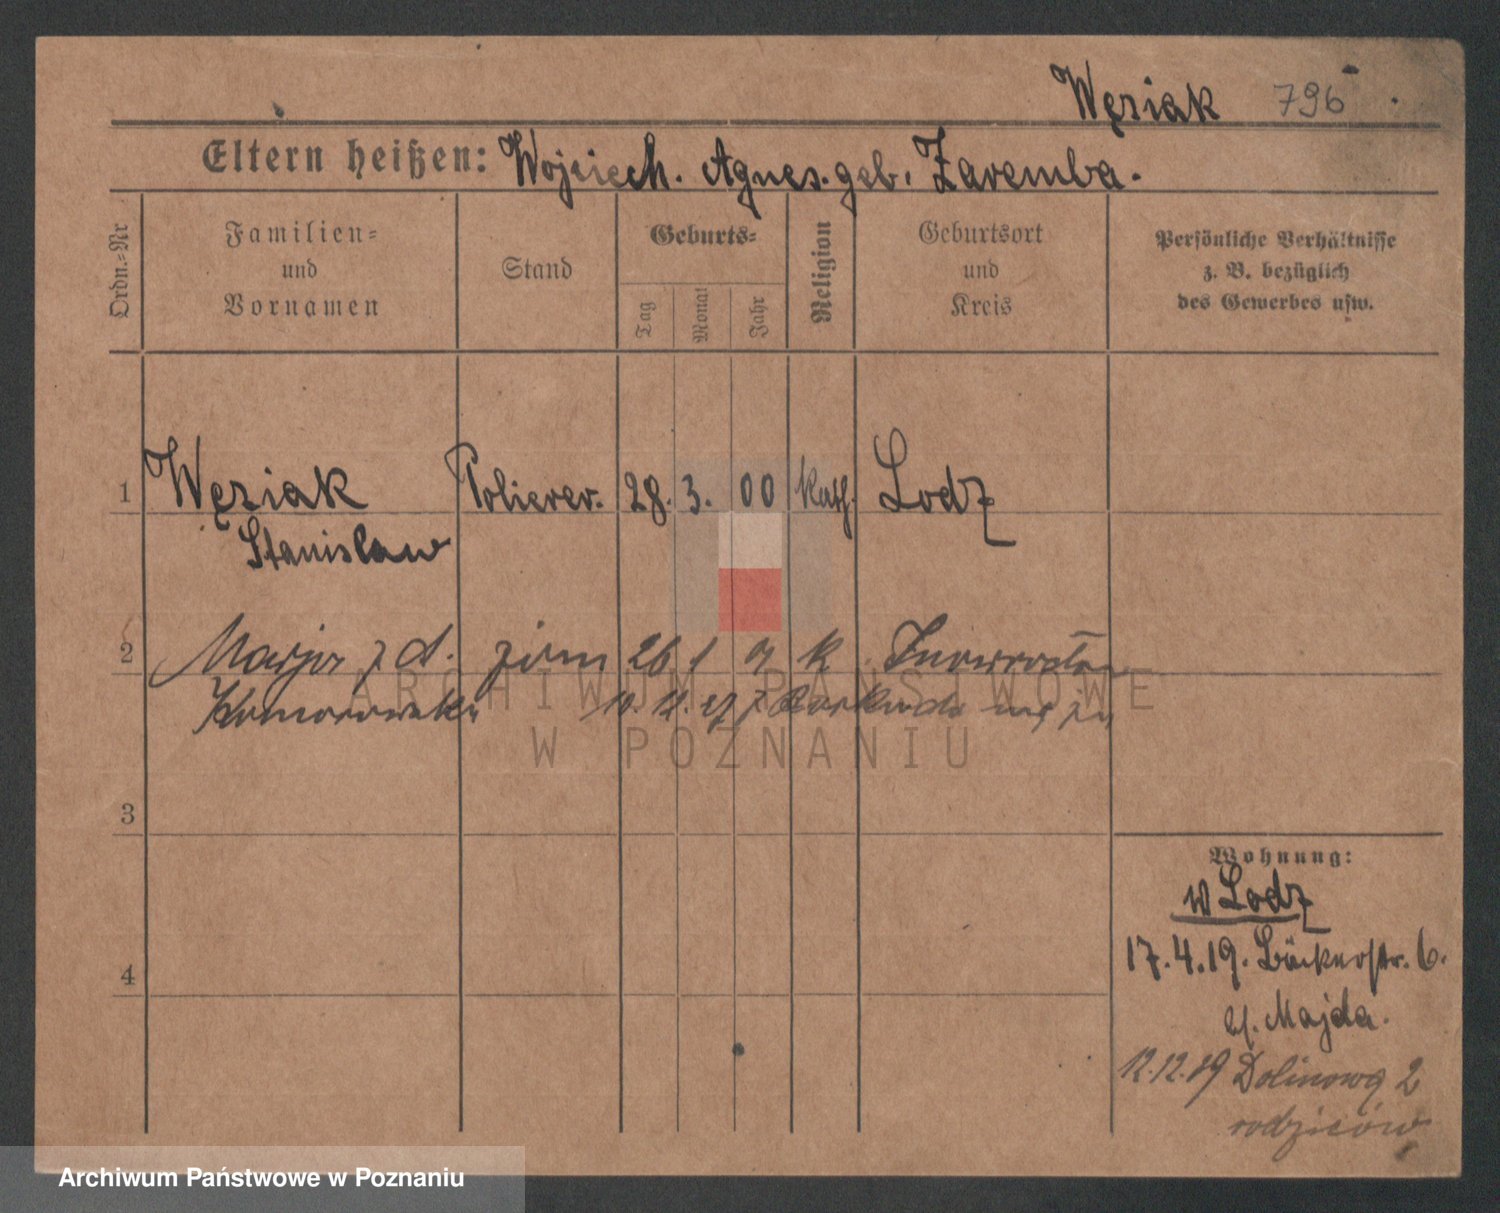 Węziak 796
Eltern heißen: Wojciech. Agnes. geb. Zaremba.
Ordn.-Nr
Familien-
und
Vornamen
Stand
Geburts-
Tag
Monat
Jahr
Religion
Geburtsort
und
Kreis
Persönliche Verhältnisse
z. B. bezüglich
des Gewerbes usw.
1 Węziak Polierer. 28. 3. 00 Kath. Lodz
Stanislaw
2 Marja z d. 26 1 k
Komorowska
3
4
Wohnung:
w Lodz
17.4.19. Bäckerstr. 6.
bf. Majda.
12.12.19 Dolinowa 2
rodziców
ARCHIWUM PAŃSTWOWE
W POZNANIU
Archiwum Państwowe w Poznaniu